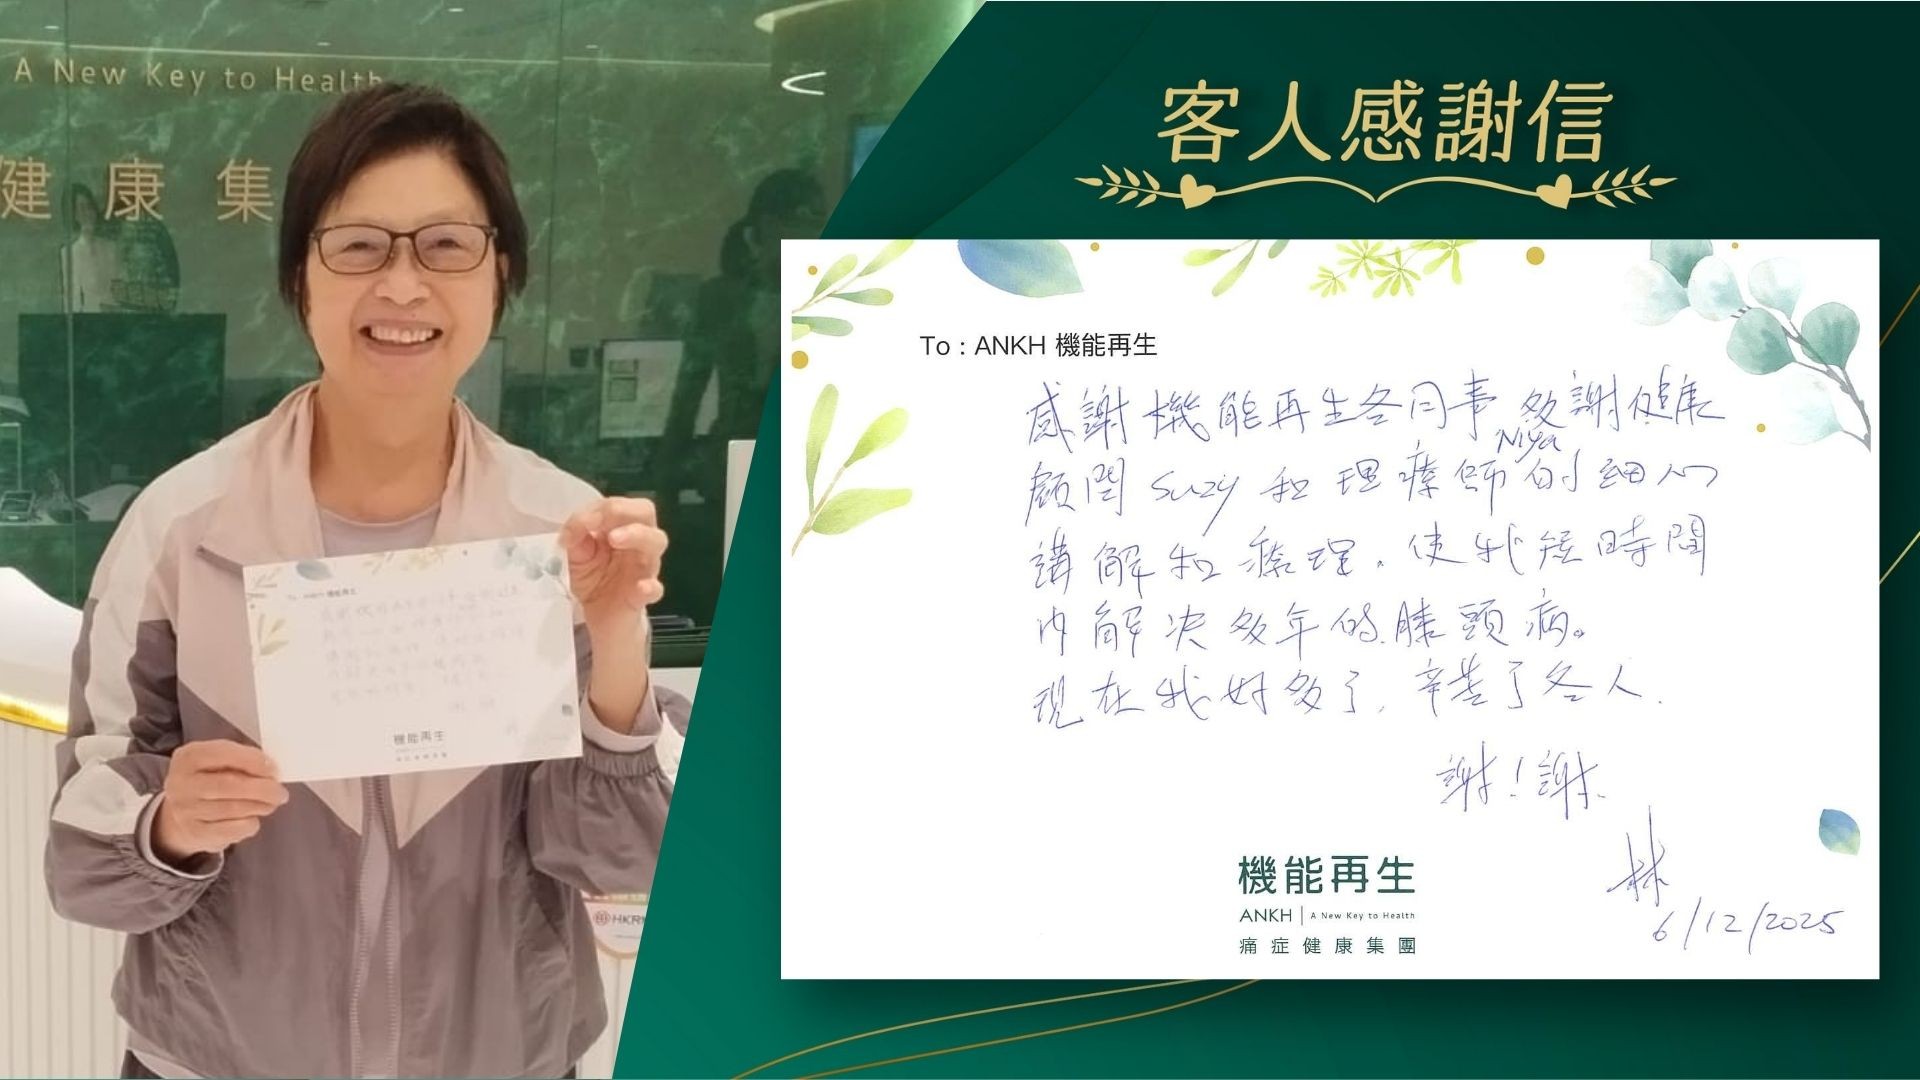 A New Key to Health
健康集
客人感謝信
To : ANKH 機能再生
感謝機能再生各同事 多謝健康
顧問 Suzy 和理療師 Niya 的細心
講解和療理。使我短時間
內解決多年的膝頭痛。
現在我好多了，辛苦了各人.
謝！謝.
林
6/12/2025
機能再生
ANKH | A New Key to Health
痛症健康集團
To : ANKH 機能再生
機能再生